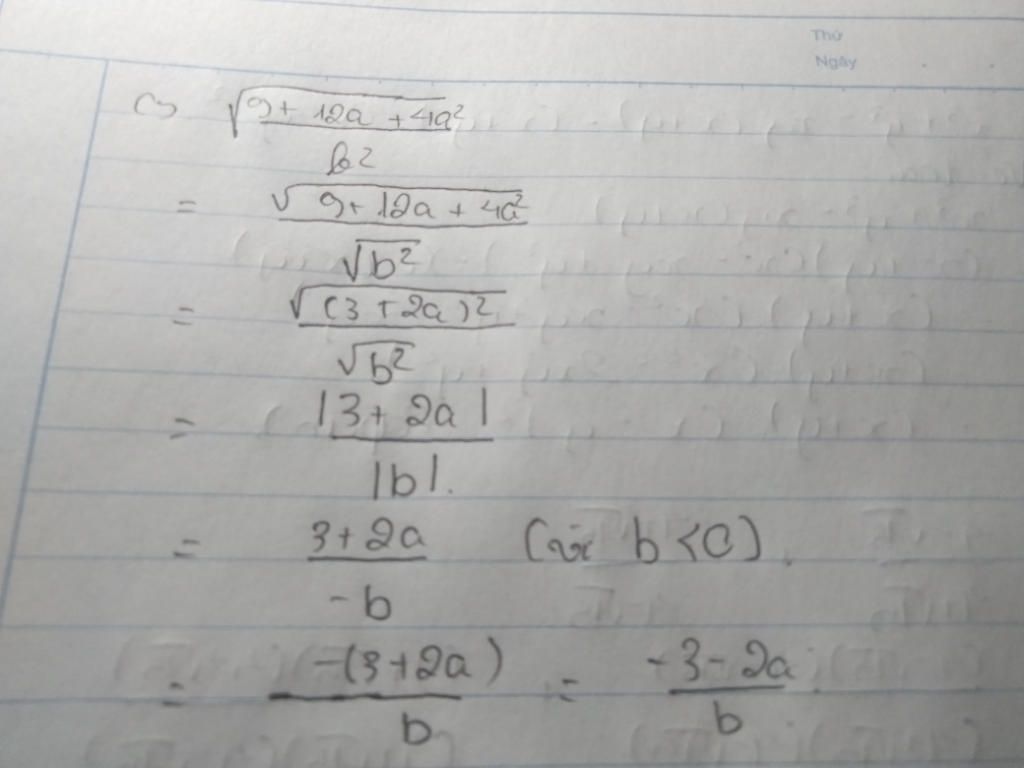 Thứ
Ngày
c) √(9 + 12a + 4a²) / b²
= √(9 + 12a + 4a²) / √b²
= √((3 + 2a)²) / √b²
= |3 + 2a| / |b|.
= (3 + 2a) / -b (vì b < 0).
= -(3 + 2a) / b = (-3 - 2a) / b